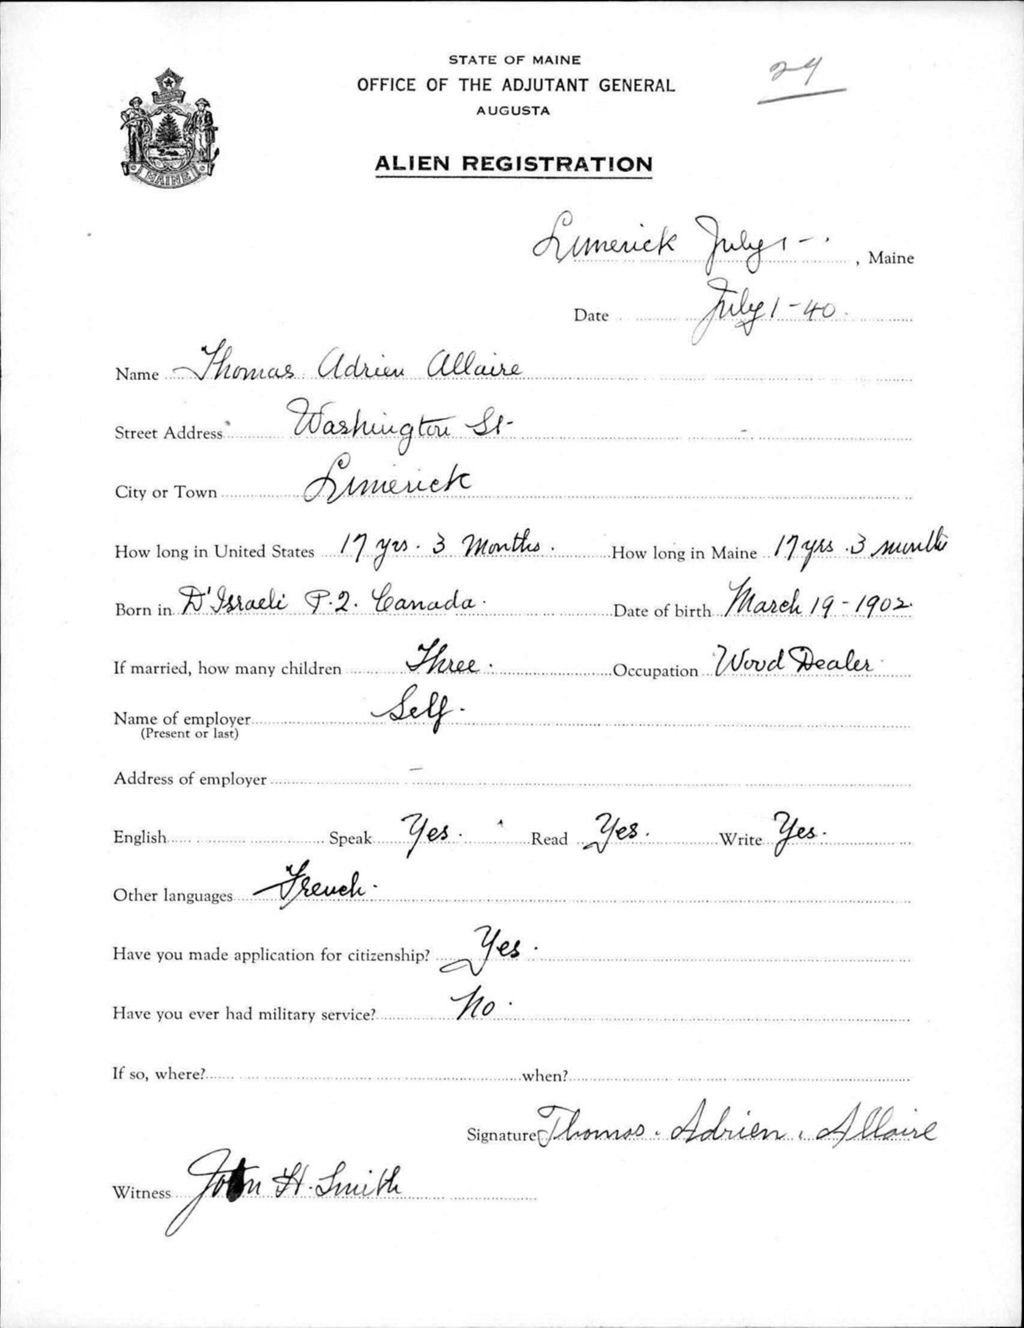 STATE OF MAINE
OFFICE OF THE ADJUTANT GENERAL
AUGUSTA
29
ALIEN REGISTRATION
MAINE
Limerick July 1 - , Maine
Date July 1-40.
Name Thomas Adrien Allaire
Street Address Washington St-
City or Town Limerick
How long in United States 17 yrs. 3 Months. How long in Maine 17 yrs. 3 months
Born in D'Israeli P.Q. Canada. Date of birth March 19-1902.
If married, how many children Three. Occupation Wood Dealer
Name of employer Self.
(Present or last)
Address of employer —
English Speak Yes. Read Yes. Write Yes.
Other languages French.
Have you made application for citizenship? Yes.
Have you ever had military service? No.
If so, where? when?
Signature Thomas. Adrien. Allaire
Witness John H. Smith